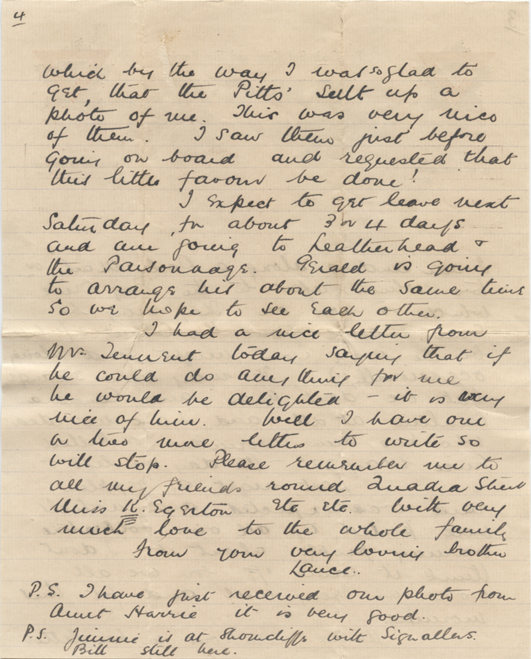 4
which by the way I was so glad to
get, that the Pitts' sent up a
photo of me. This was very nice
of them. I saw them just before
going on board and requested that
this little favour be done!
I expect to get leave next
Saturday, for about 3 or 4 days
and am going to Leatherhead &
the Parsonage. Gerald is going
to arrange his about the same time
so we hope to see each other.
I had a nice letter from
Mr Tennent today saying that if
he could do anything for me
he would be delighted - it is very
nice of him. Well I have one
or two more letters to write so
will stop. Please remember me to
all my friends round Quadra Street
Miss K. Egerton etc etc. With very
much love to the whole family
from your very loving brother
Lance..
P.S. I have just received our photo from
Aunt Harrie it is very good.
P.S. Jimmie is at Shorncliffe with Signallers.
Bill still here.